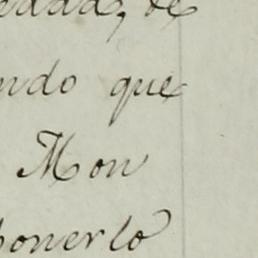 edad, de
ndo que
Mon
ponerlo